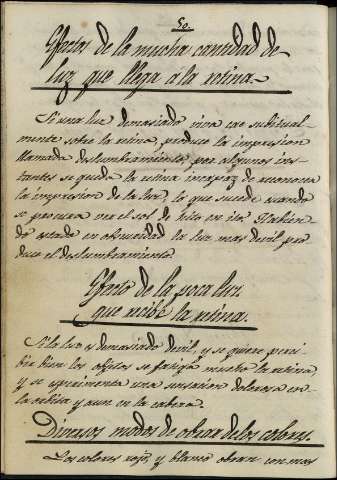 50.
Efectos de la mucha cantidad de
luz que llega á la retina.
Si una luz demasiado viva cae subitual-
mente sobre la retina, produce la impresion
llamada deslumbramiento, por algunos ins-
tantes se queda la retina incapaz de reconocer
la impresion de la luz, lo que sucede cuando
se procura ver el sol de hito en ito. Habien-
do estado en obscuridad la luz mas devil pro
duce el deslumbramiento.
Efecto de la poca luz
que recibe la retina.
Si la luz es demasiado devil, y se quiere perci-
bir bien los objetos se fatiga mucho la retina
y se esperimenta una sensacion dolorosa en
la orbita y aun en la cabeza.
Diversos modos de obrar de los colores.
Los colores rojo, y blanco obran con mas